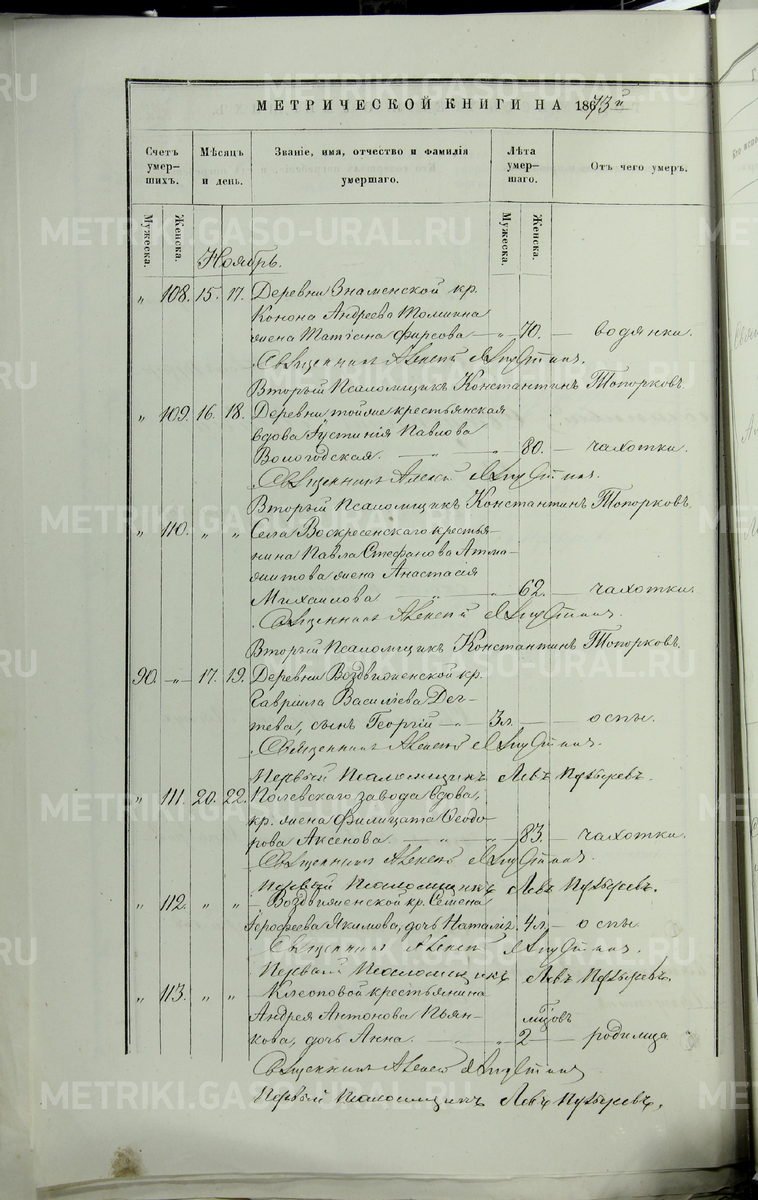 МЕТРИЧЕСКОЙ КНИГИ НА 1873й
Счетъ умер- шихъ.
Мѣсяцъ и день.
Званіе, имя, отчество и фамилія умершаго.
Лѣта умер- шаго.
Отъ чего умеръ.
Мужеска. Женска. Мужеска. Женска.
Ноябрь.
„ 108. 15. 17. Деревни Знаменской кр.
Конона Андреева
жена Татіана Фирсова — „ 70. — водянки.
Священникъ Алексѣй
Вторый Псаломщикъ Константинъ Топорковъ.
„ 109. 16. 18. Деревни тойже крестьянская
вдова Іустинія Павлова
Вологодская. — „ 80. — чахотки.
Священникъ Алексѣй
Вторый Псаломщикъ Константинъ Топорковъ.
„ 110. „ „ Села Воскресенскаго крестья-
нина Павла Стефанова
жена Анастасія
Михаилова — „ 62. — чахотки.
Священникъ Алексѣй
Вторый Псаломщикъ Константинъ Топорковъ.
90. — 17. 19. Деревни Воздвиженской кр.
Гавріила Василіева Дег-
тева, сынъ Георгій — 3л. — оспы.
Священникъ Алексѣй
Первый Псаломщикъ Левъ
„ 111. 20. 22. Полевскаго завода вдова,
кр. жена Филицата Ѳеодо-
рова Аксенова. — 83. — чахотки.
Священникъ Алексѣй
Первый Псаломщикъ Левъ
„ 112. „ „ — Воздвиженской кр. Семена
Іерофеева Якимова, дочь Наталія 4л. — оспы.
Священникъ Алексѣй
Первый Псаломщикъ Левъ
„ 113. „ „ — Клеоповой крестьянина
Андрея Антонова Пьян-
кова, дочь Анна. — „ 2 — родимца
Священникъ Алексѣй
Первый Псаломщикъ Левъ
METRIKI.GASO-URAL.RU